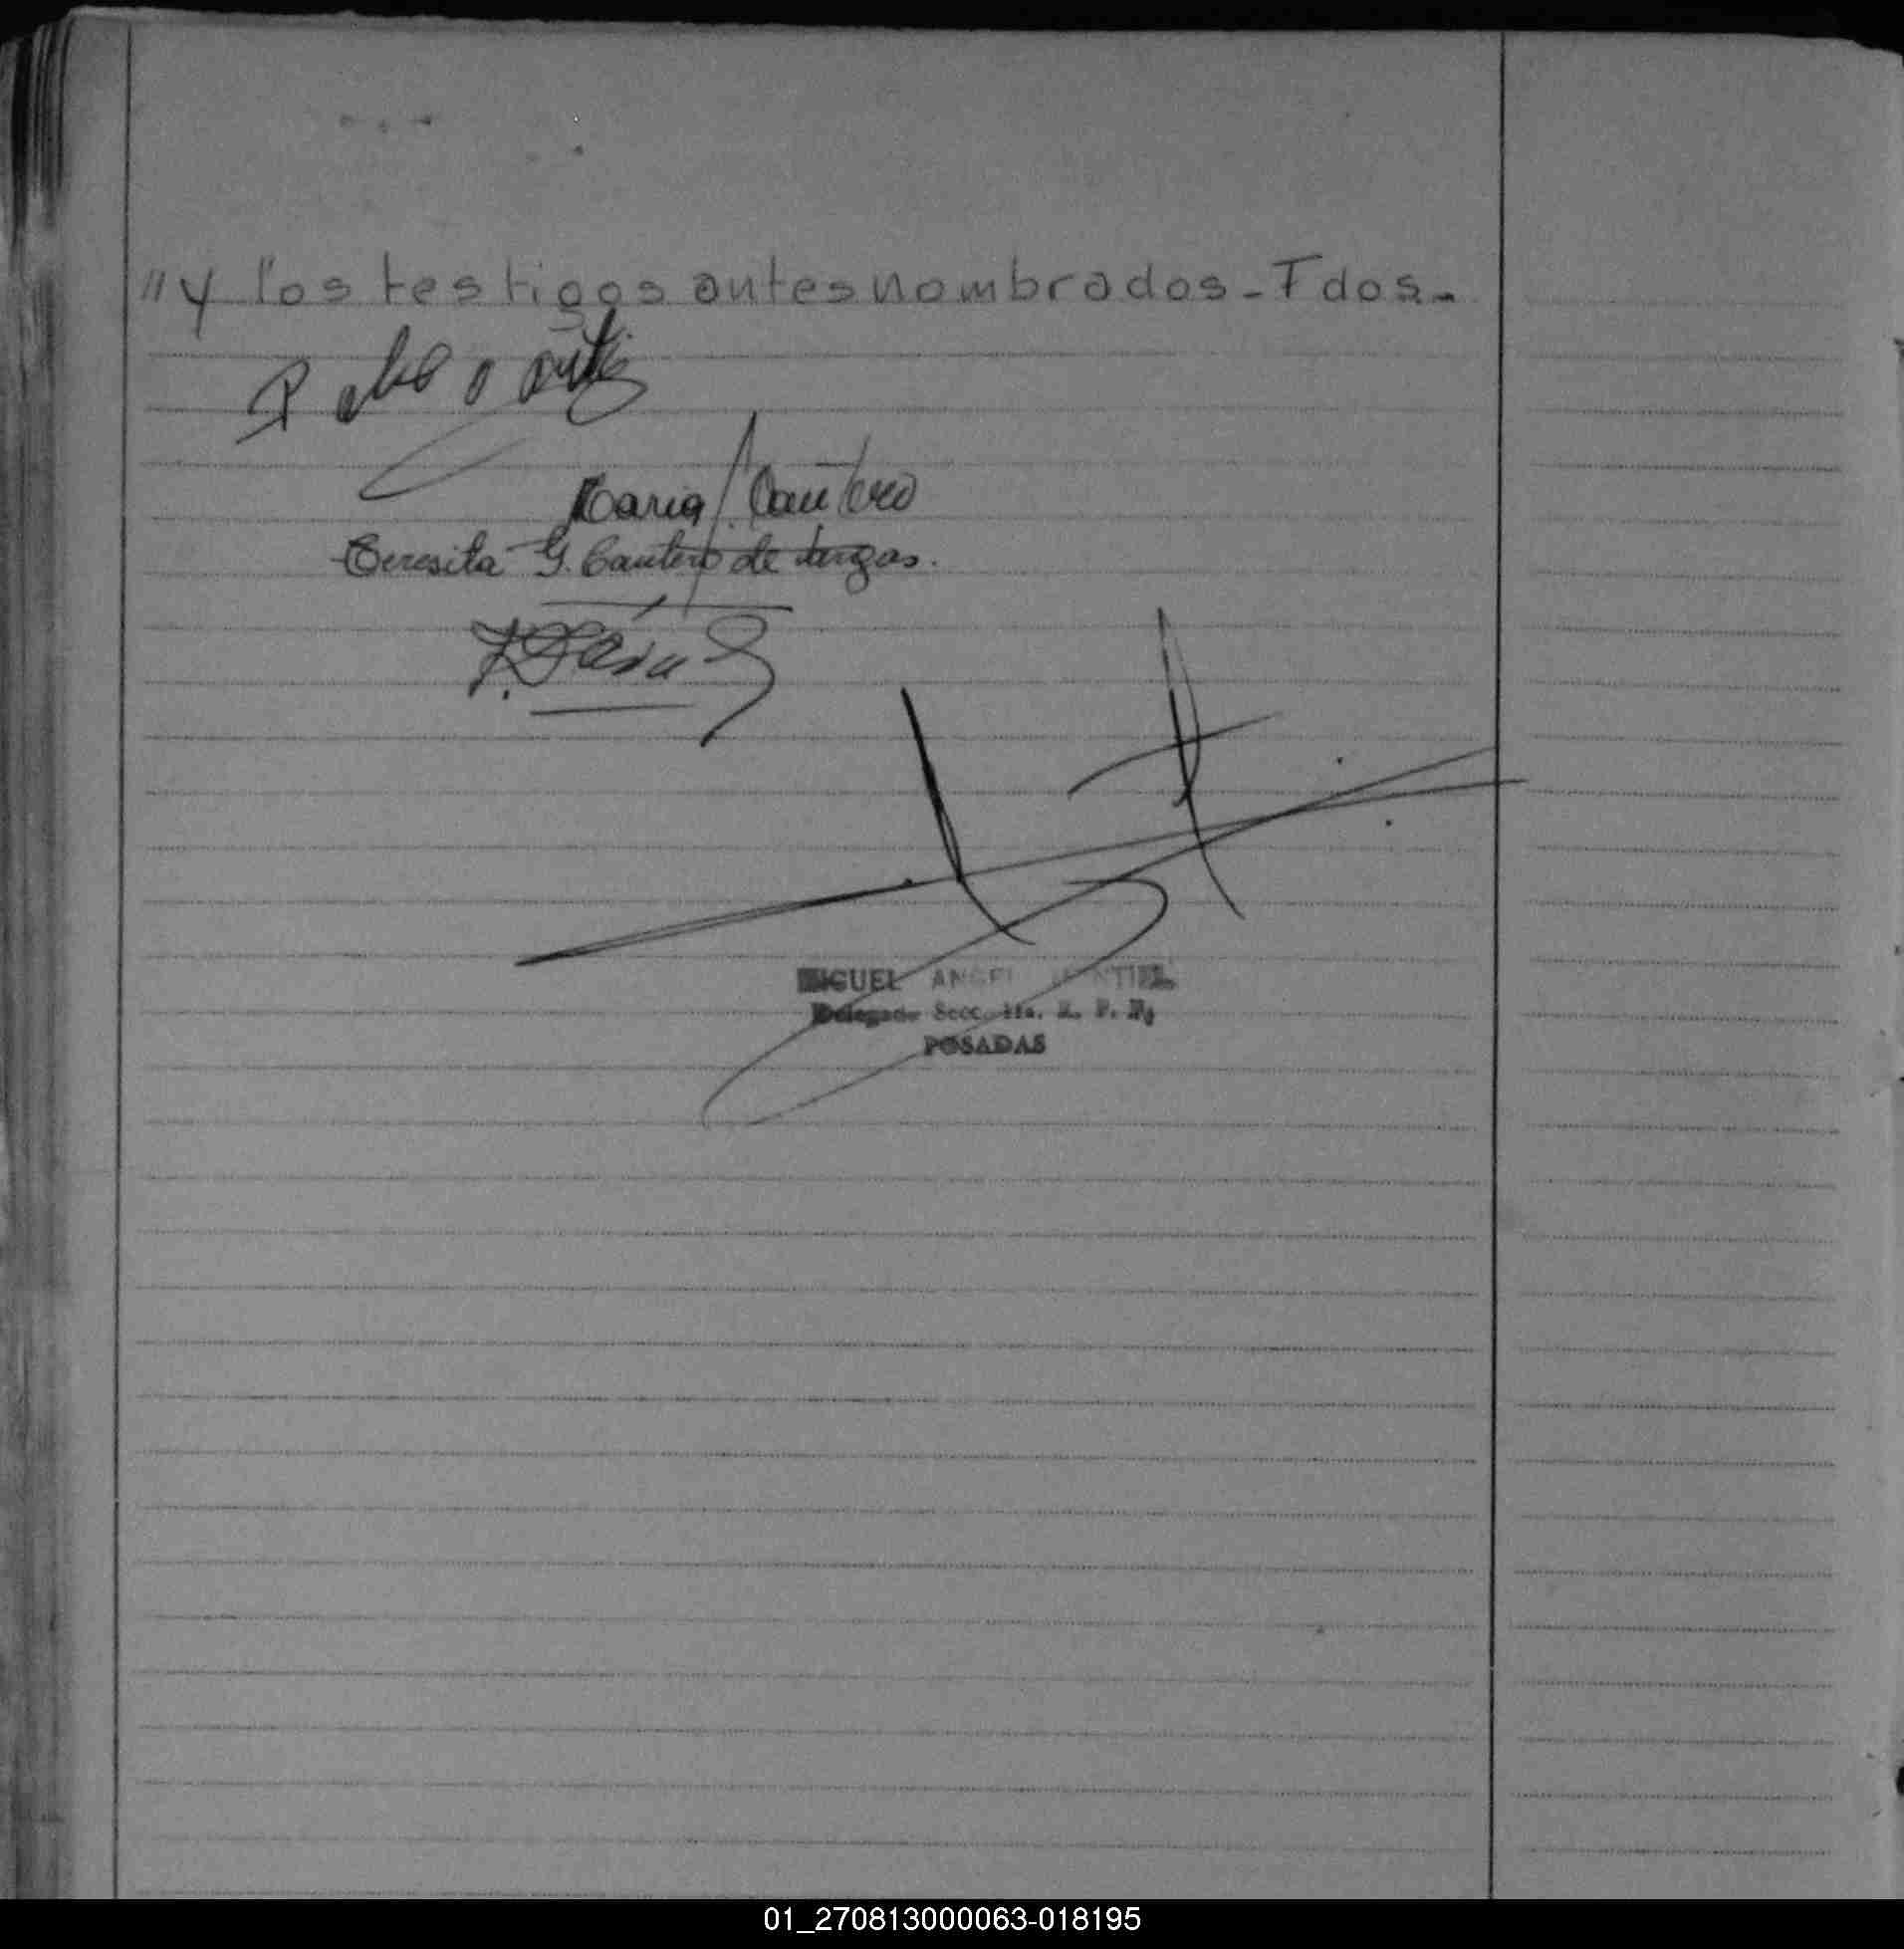 "y los testigos antes nombrados - Fdos. -
Pablo Ortiz
Maria Cantero
Teresita G. Cantero de
MIGUEL ANGEL
Delegado Secc. 
POSADAS
01_270813000063-018195